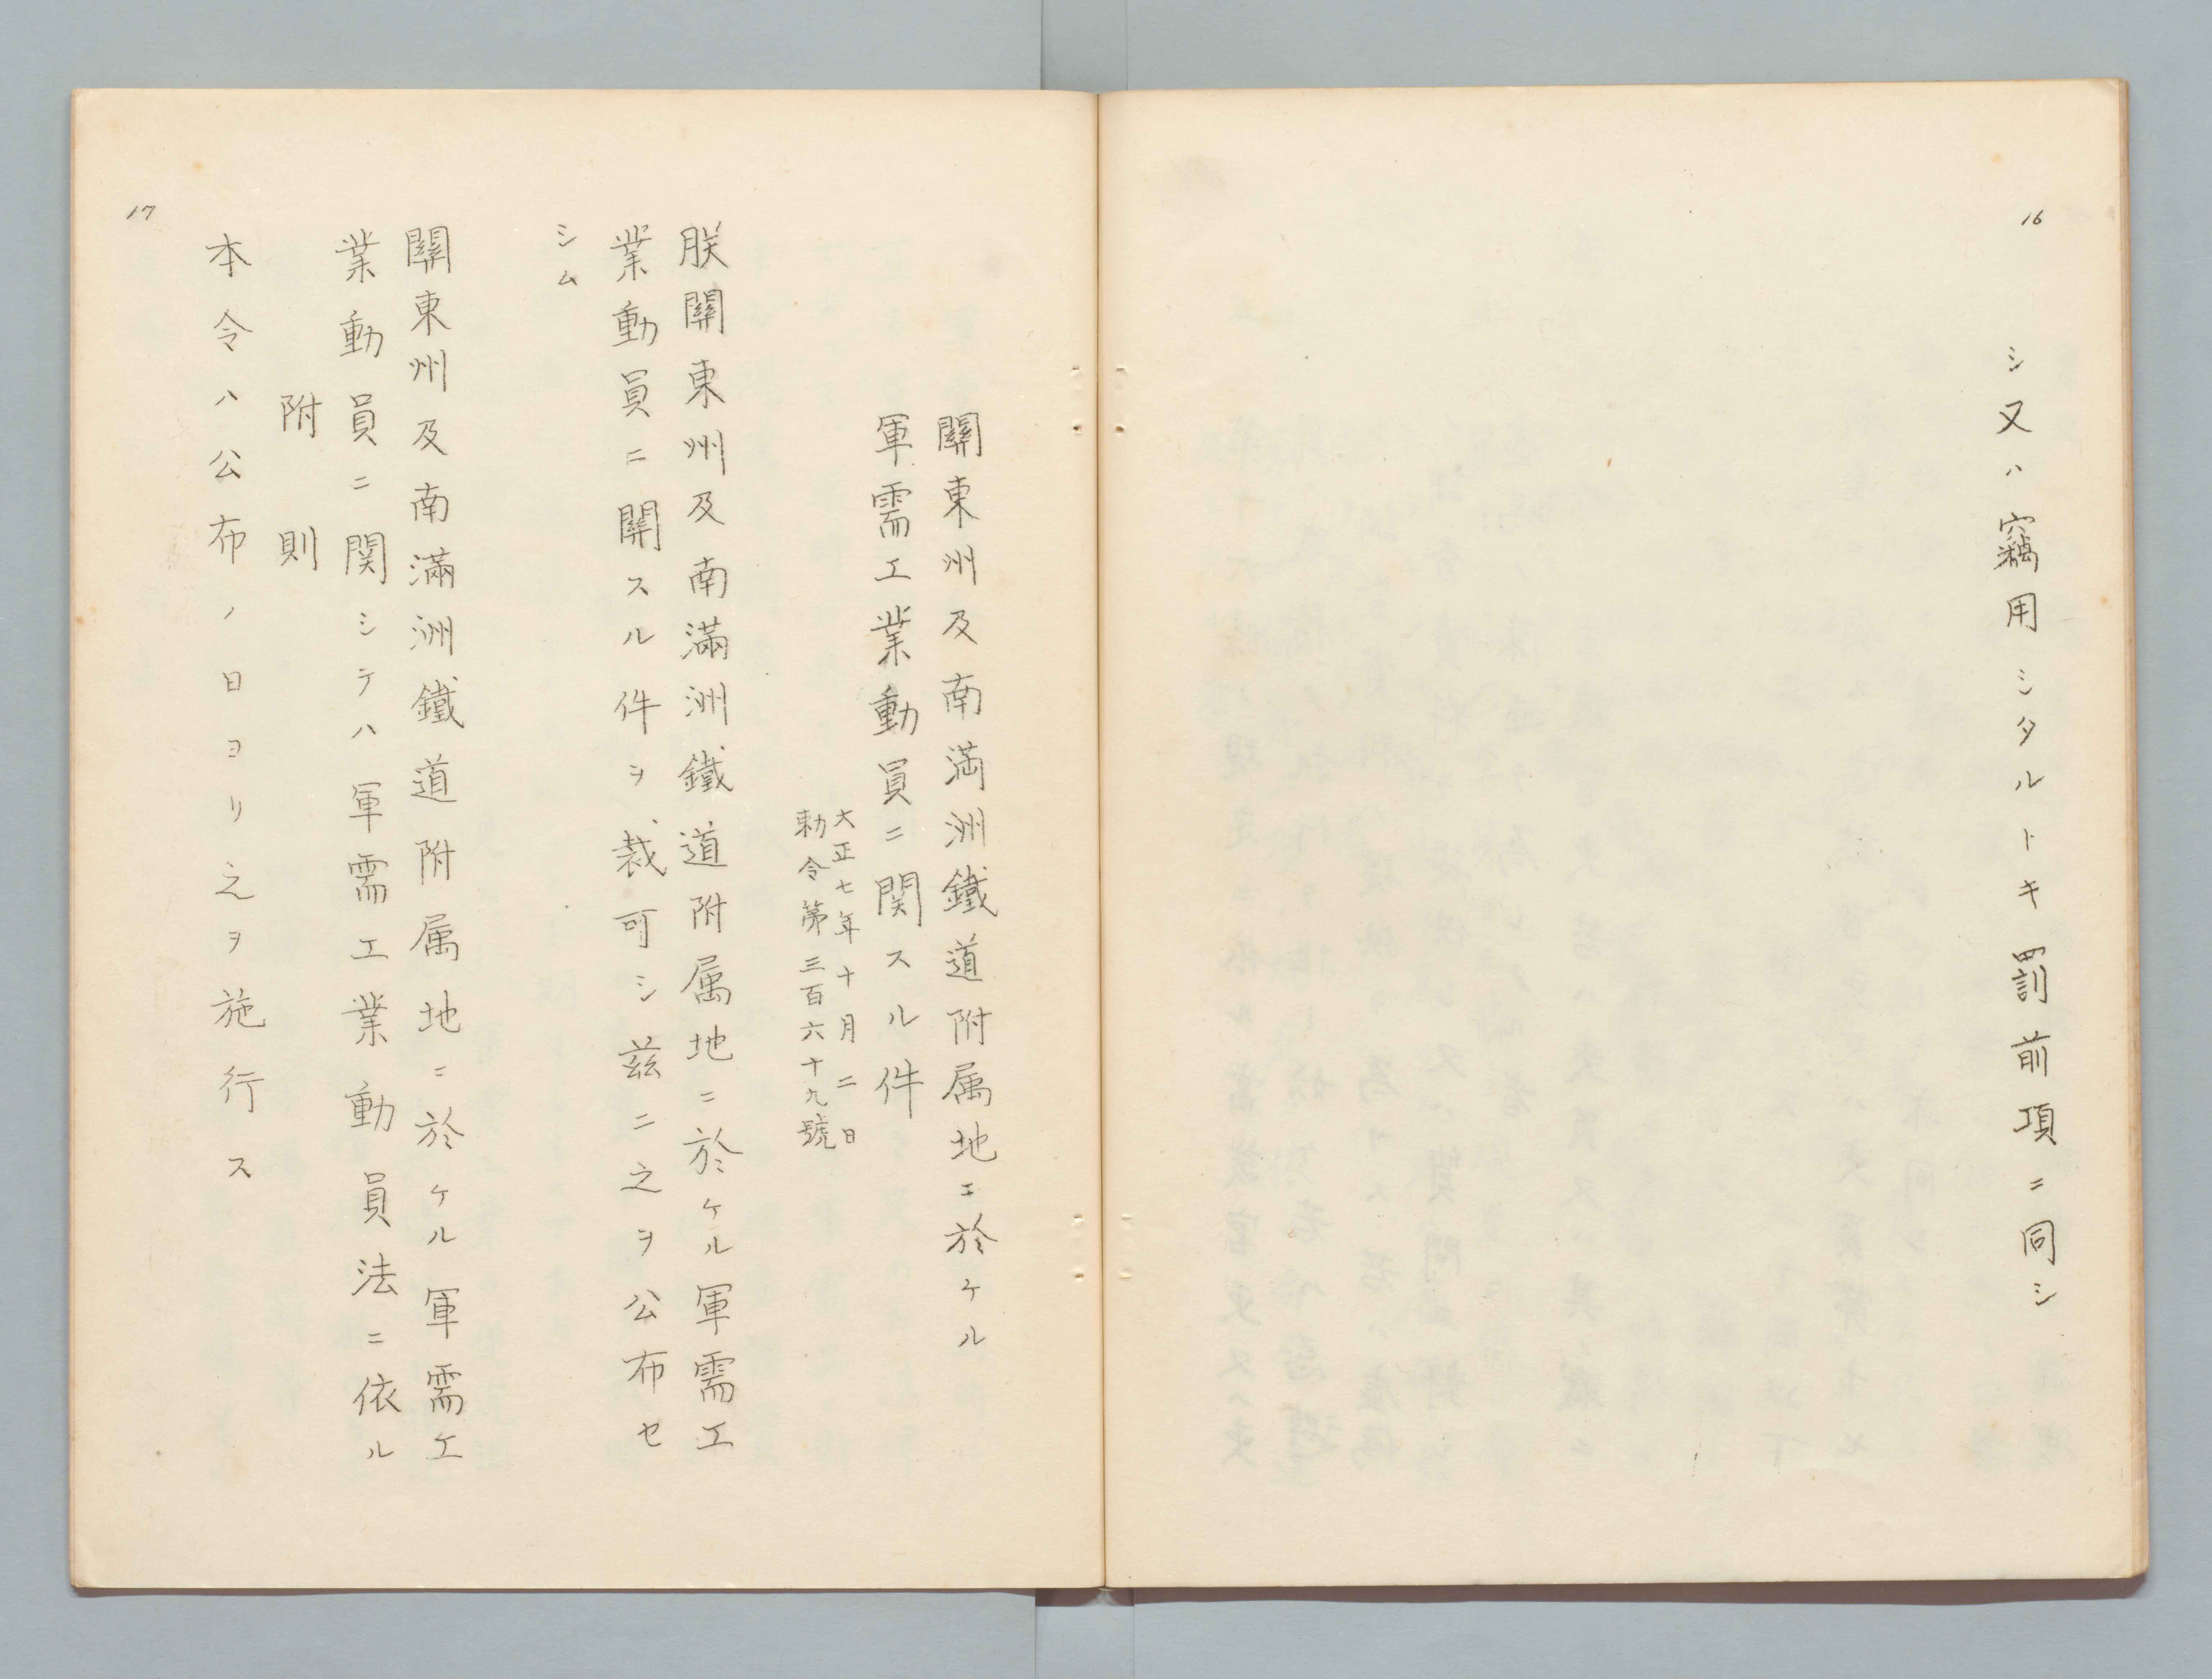 16
シ又ハ竊用シタルトキ罰前項ニ同シ
關東州及南満洲鐵道附属地ニ於ケル
軍需工業動員ニ関スル件
大正七年十月二日
勅令第三百六十九號
朕關東州及南滿洲鐵道附属地ニ於ケル軍需工
業動員ニ關スル件ヲ裁可シ茲ニ之ヲ公布セ
シム
關東州及南滿洲鐵道附属地ニ於ケル軍需工
業動員ニ関シテハ軍需工業動員法ニ依ル
附則
本令ハ公布ノ日ヨリ之ヲ施行ス
17